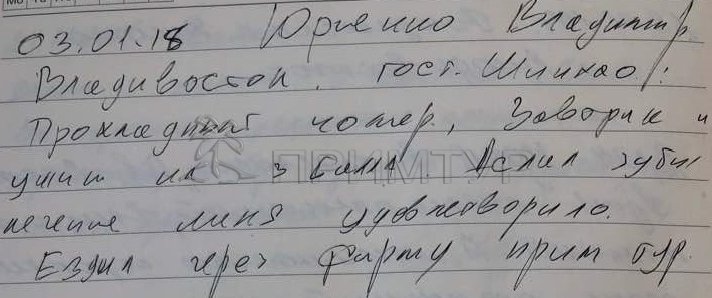 03.01.18 Юрченко Владимир
Владивосток. гост. Шинхао!
Прохладный номер, Завтрак и
ужин на 3 балла. Делал зубы
лечение меня удовлетворило.
Ездил через фирму прим тур.
ПРИМТУР